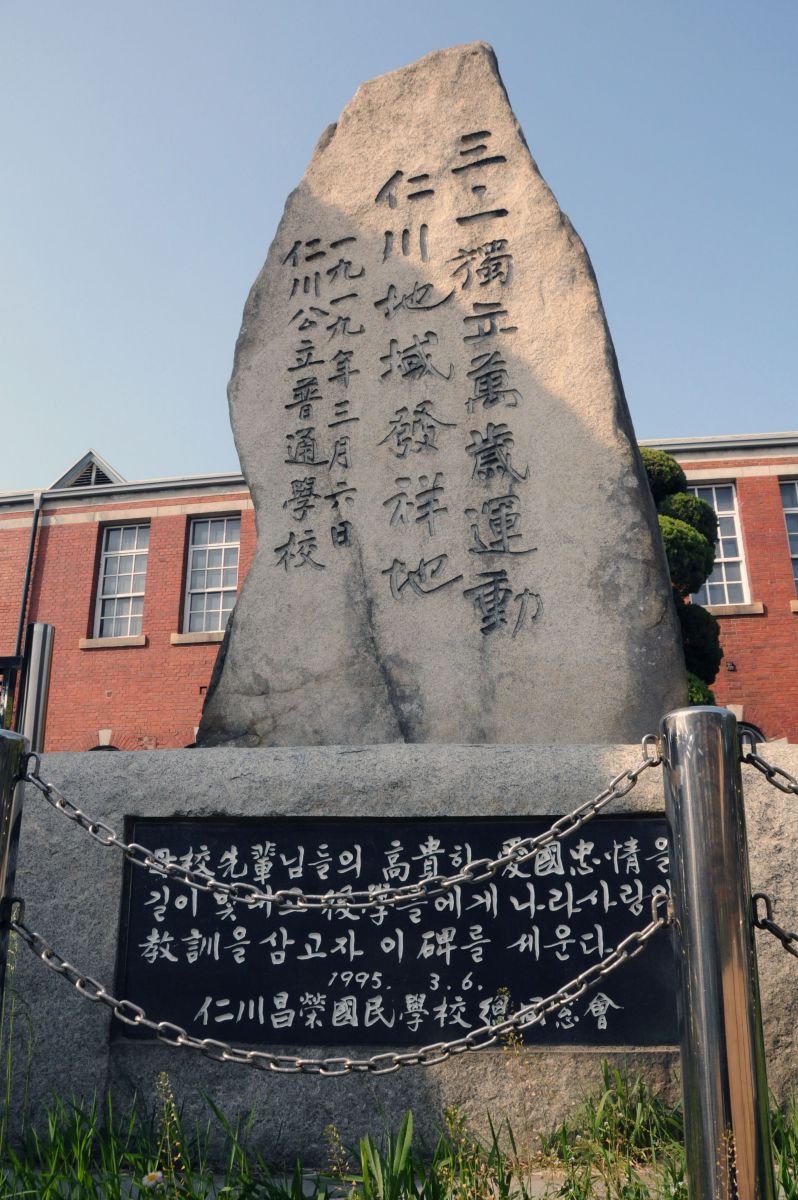 三·一獨立萬歲運動
仁川地域發祥地
一九一九年三月六日
仁川公立普通學校
母校先輩님들의 高貴한 愛國忠情을
길이 빛내고 後學들에게 나라사랑의
敎訓을 삼고자 이 碑를 세운다.
1995. 3. 6.
仁川昌榮國民學校總同窓會